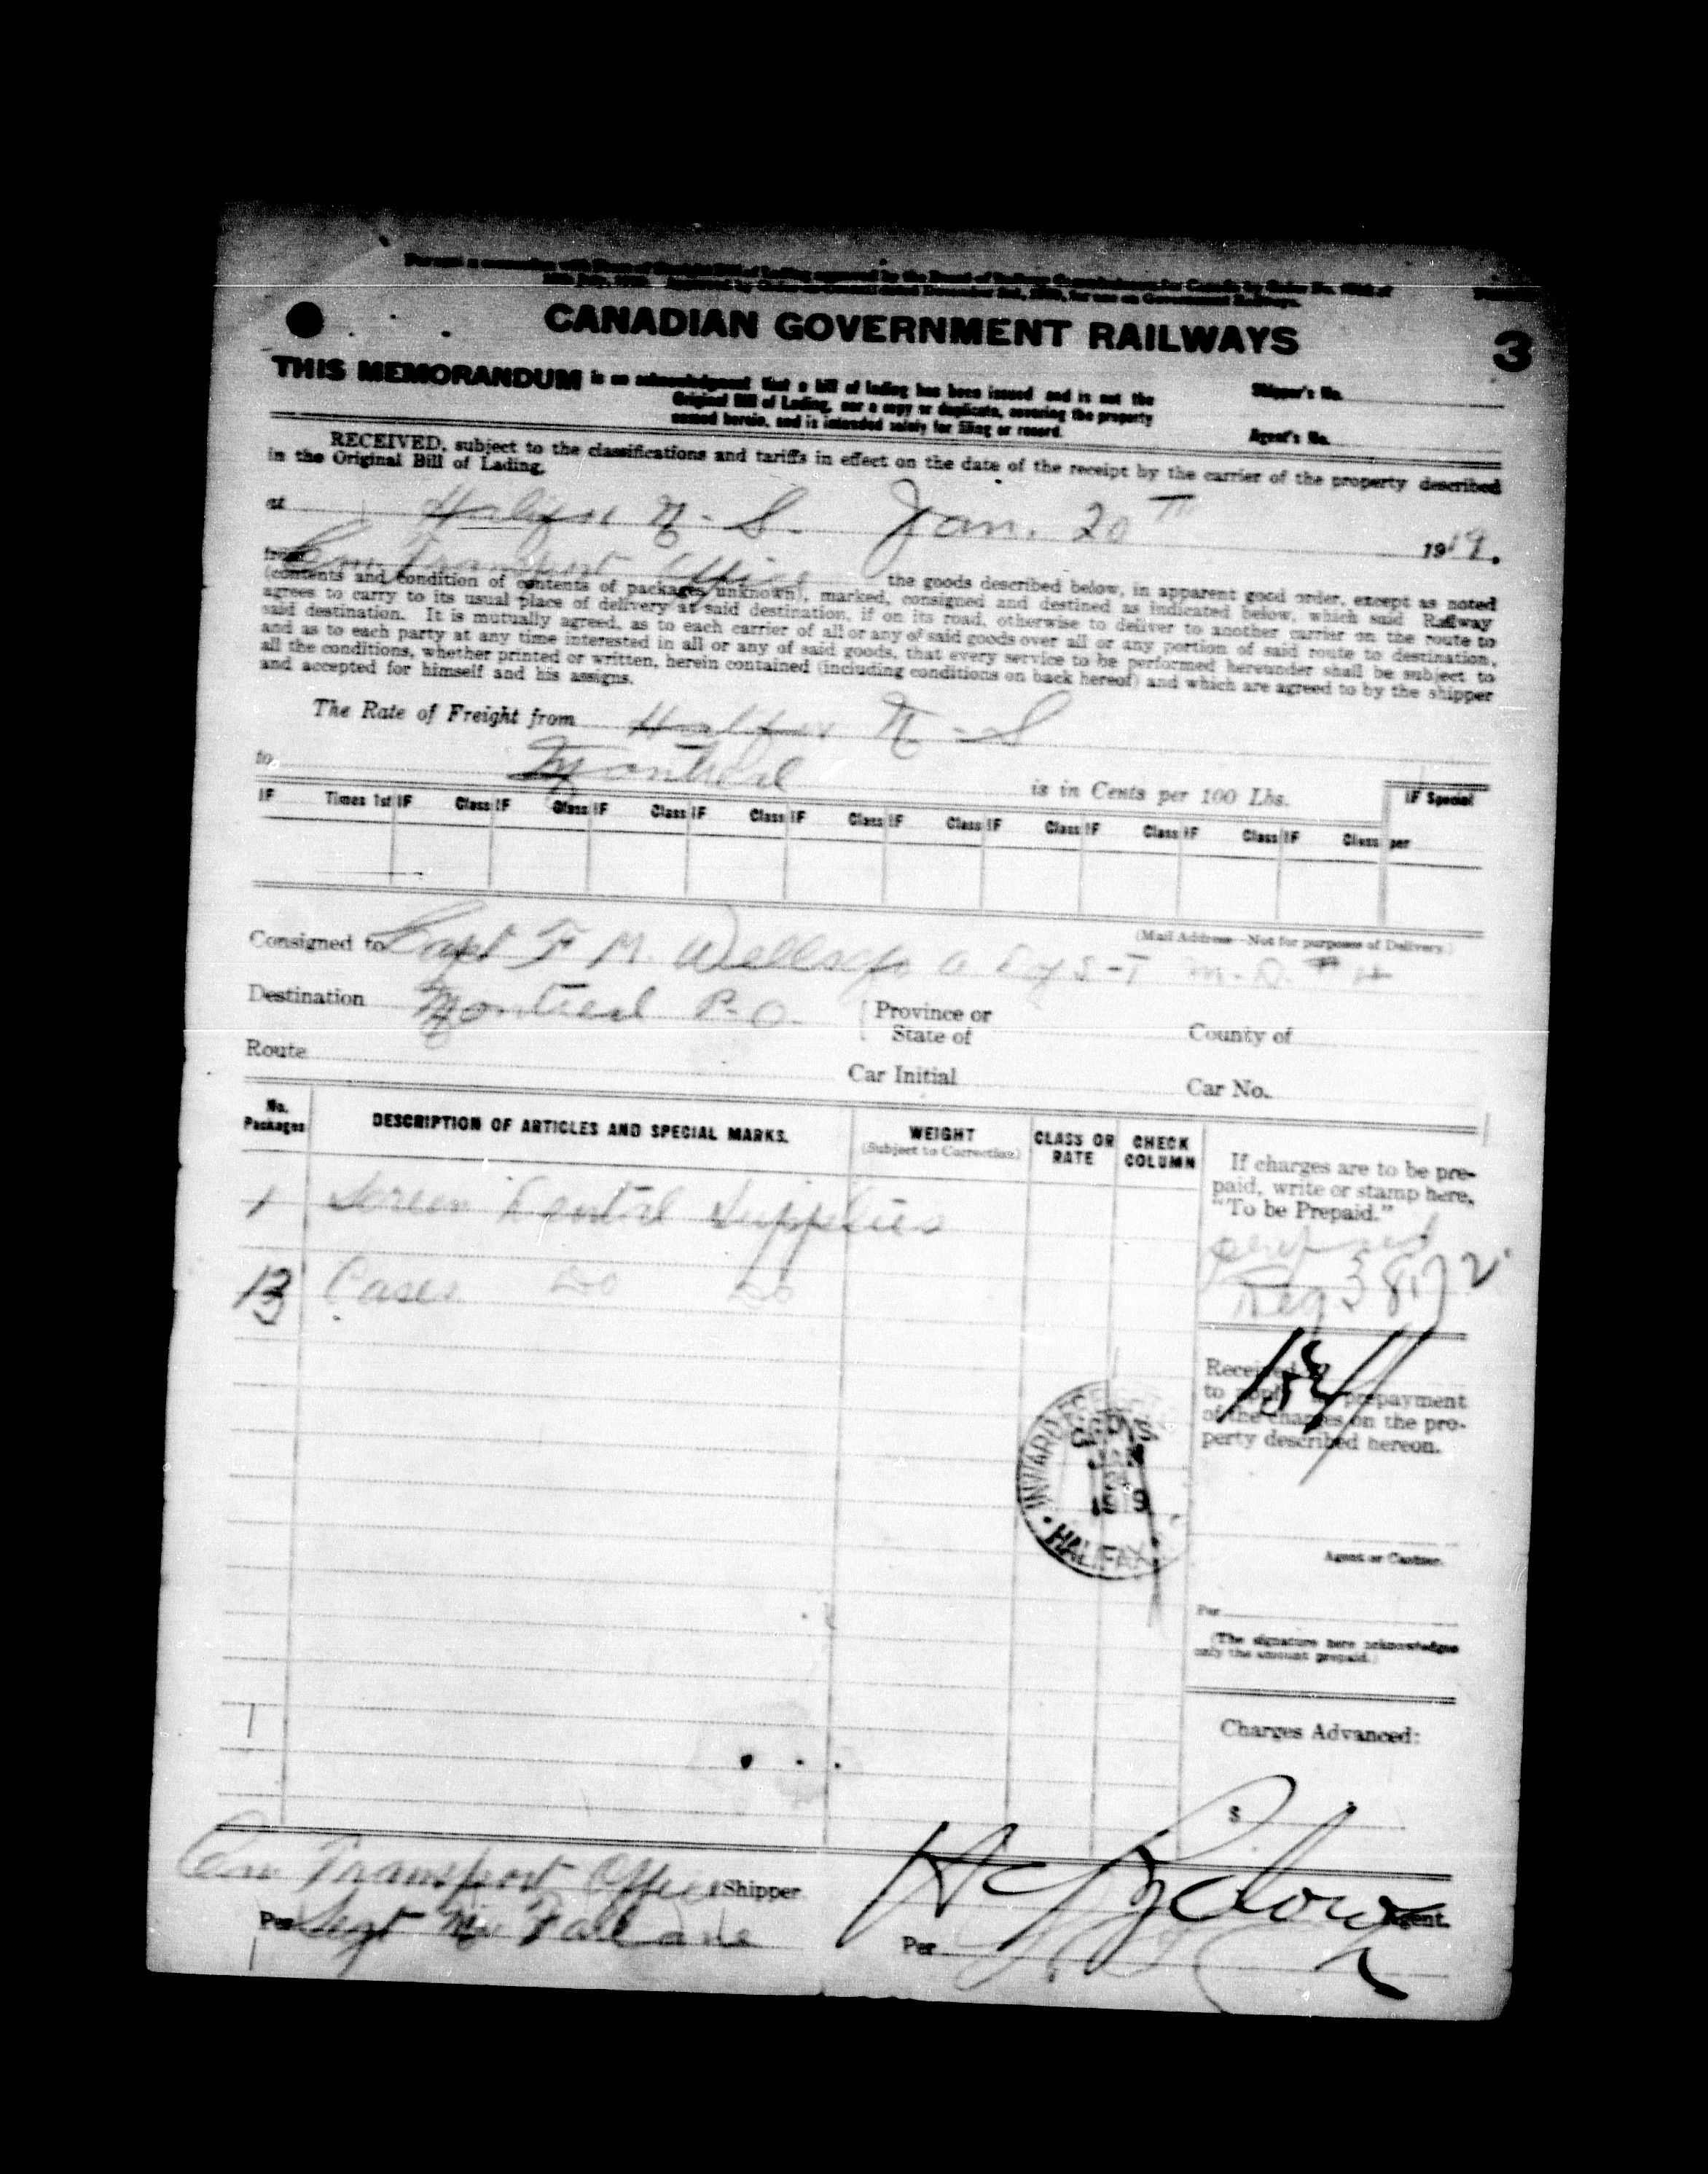 CANADIAN GOVERNMENT RAILWAYS
3
THIS MEMORANDUM is an acknowledgment that a bill of lading has been issued and is not the
Original Bill of Lading, nor a copy or duplicate, covering the property
named herein, and is intended solely for filing or record.
Shipper's No.
Agent's No.
RECEIVED, subject to the classifications and tariffs in effect on the date of the receipt by the carrier of the property described
in the Original Bill of Lading,
at Halifax N. S. Jan. 20th 1919.
from Transport Office the goods described below, in apparent good order, except as noted
(contents and condition of contents of packages unknown), marked, consigned and destined as indicated below, which said Railway
agrees to carry to its usual place of delivery at said destination, if on its road, otherwise to deliver to another carrier on the route to
said destination. It is mutually agreed, as to each carrier of all or any of said goods over all or any portion of said route to destination,
and as to each party at any time interested in all or any of said goods, that every service to be performed hereunder shall be subject to
all the conditions, whether printed or written, herein contained (including conditions on back hereof) and which are agreed to by the shipper
and accepted for himself and his assigns.
The Rate of Freight from Halifax N-S
to Montreal is in Cents per 100 Lbs.
IF Special
IF Times 1st IF Class IF Class IF Class IF Class IF Class IF Class IF Class IF Class IF Class IF Class per
(Mail Address—Not for purposes of Delivery.)
Consigned to Capt F M. M.D. # 4
Destination Montreal P.Q. Province or
State of County of
Route Car Initial Car No.
No.
Packages
DESCRIPTION OF ARTICLES AND SPECIAL MARKS.
WEIGHT
(Subject to Correction)
CLASS OR
RATE
CHECK
COLUMN
If charges are to be pre-
paid, write or stamp here,
"To be Prepaid."
1 Dental Supplies
13 Cases Do Do
Received $
to apply in prepayment
of the charges on the pro-
perty described hereon.
INWARD
1919
HALIFAX
Agent or Cashier.
Per
(The signature here acknowledges
only the amount prepaid.)
Charges Advanced:
$
Transport Office Shipper
Agent.
Per Sgt
Per